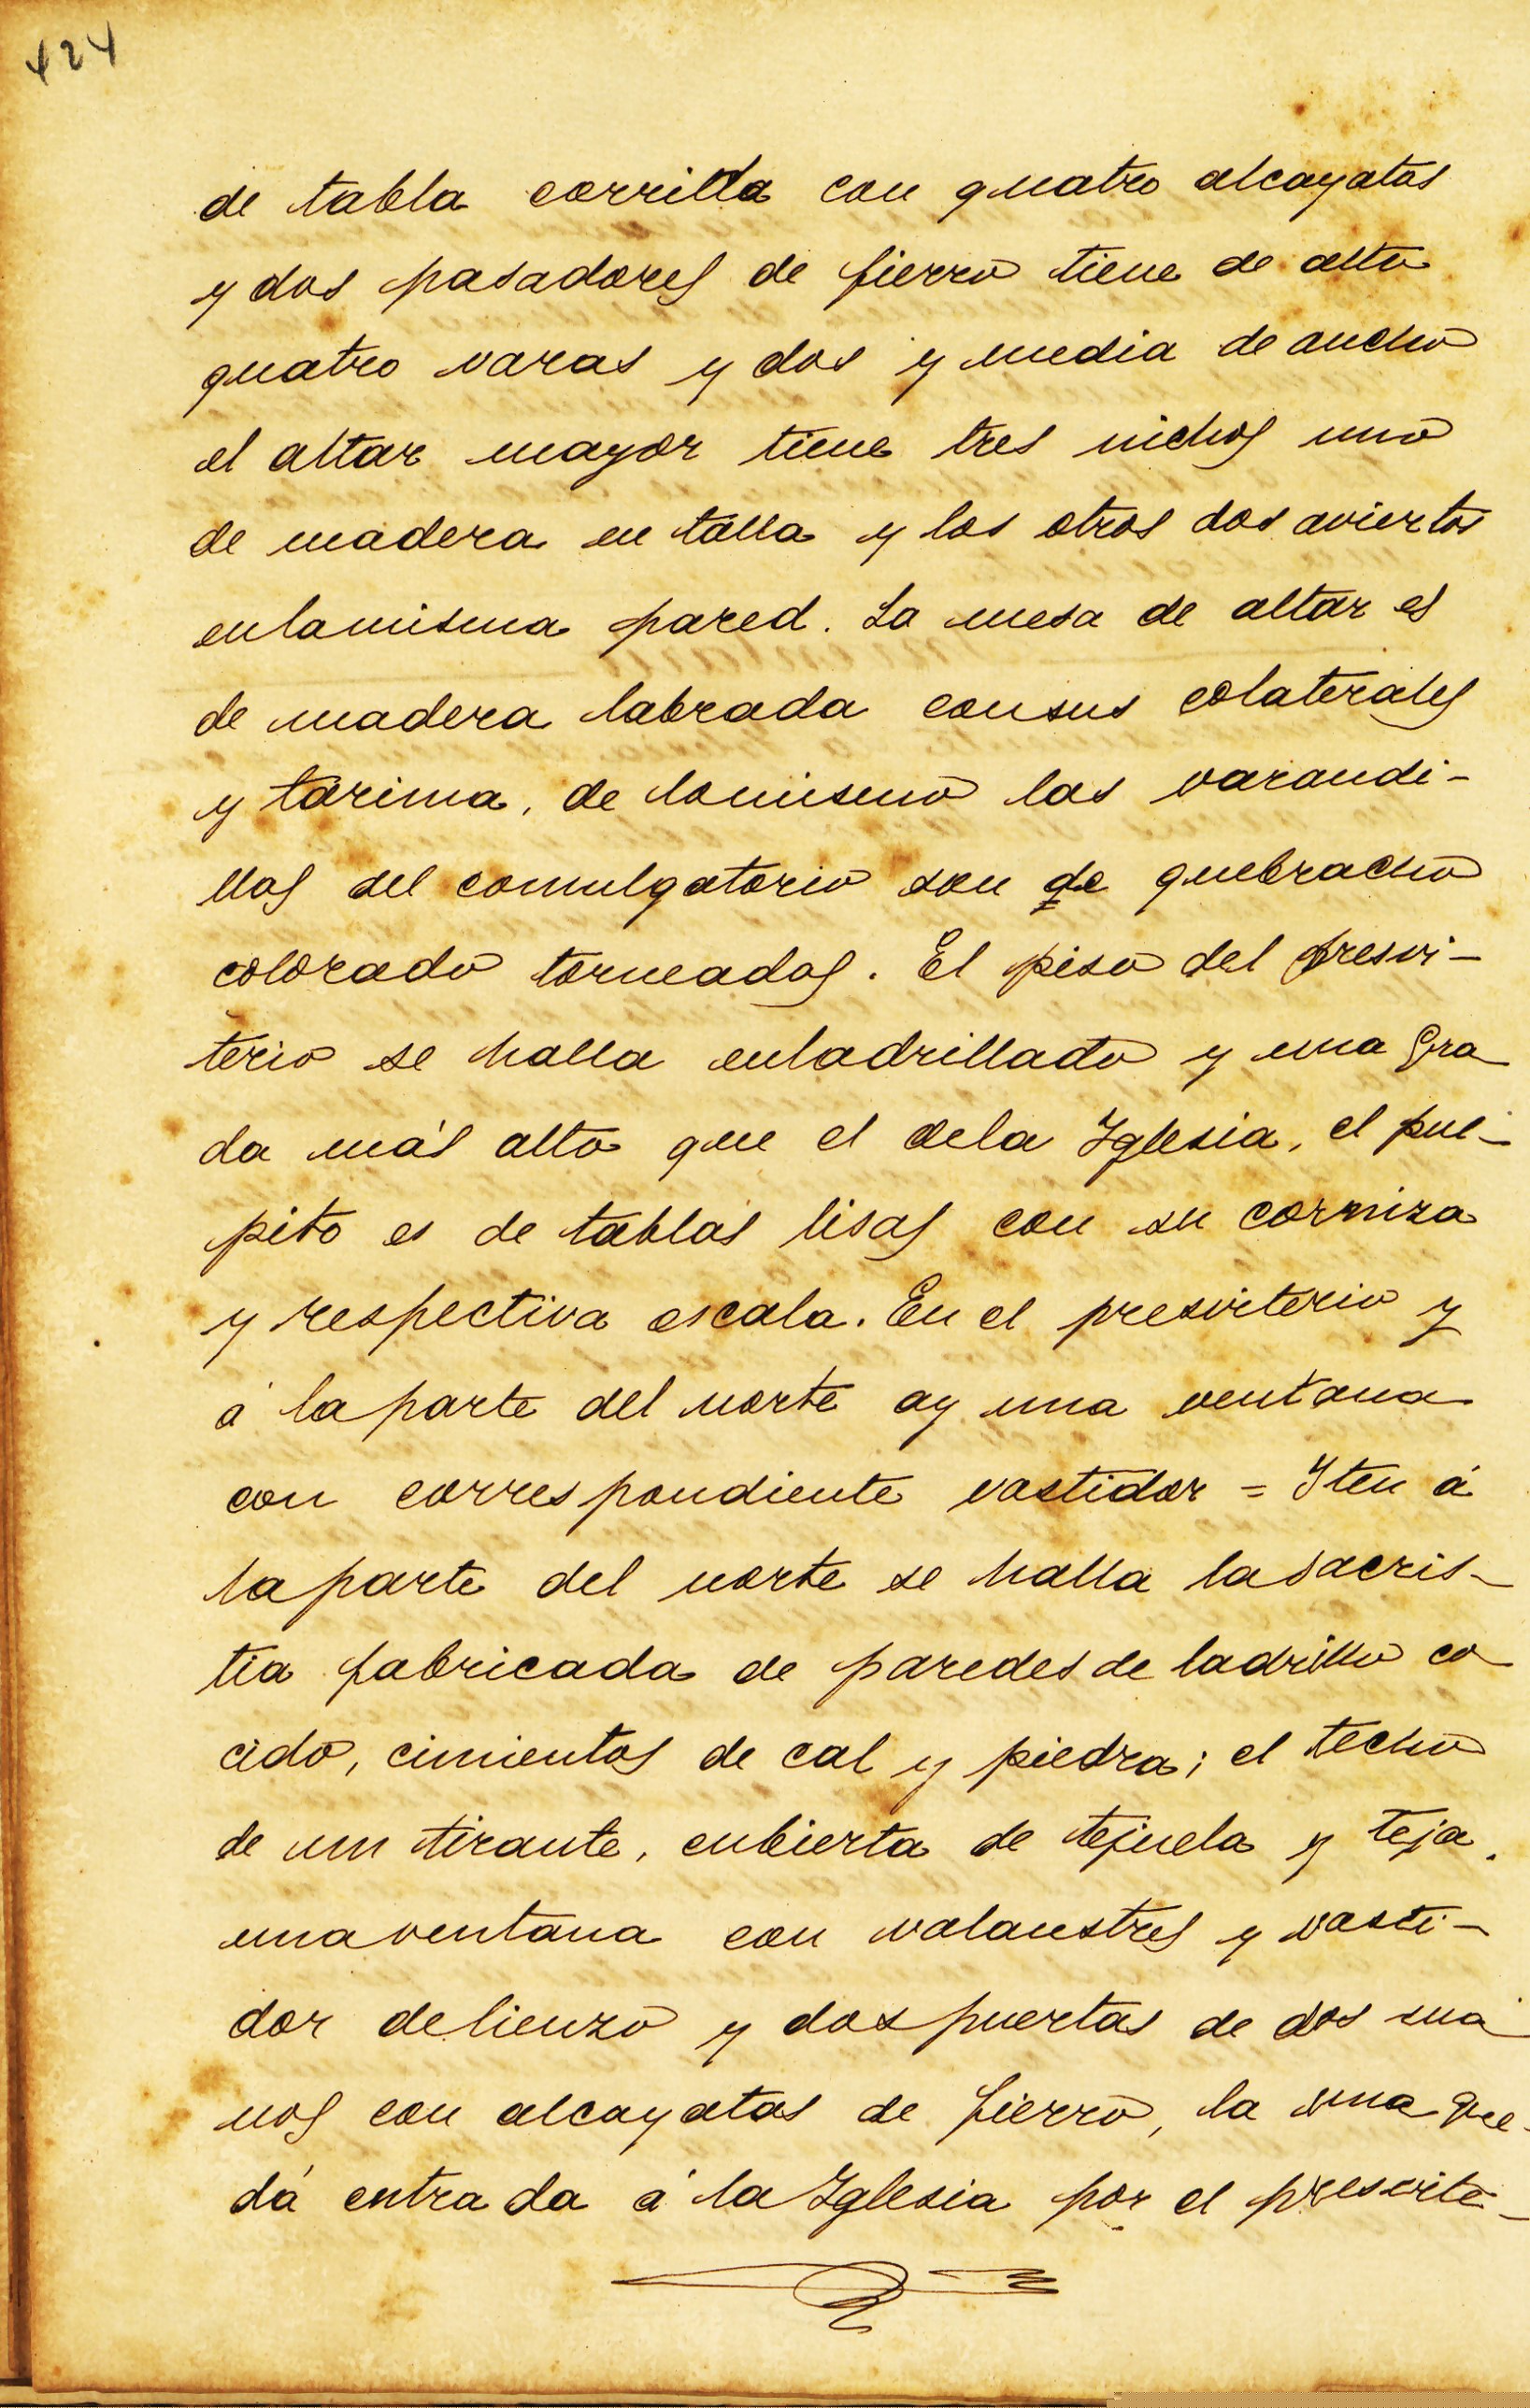 424
de tabla corrida con quatro alcayatas
y dos pasadores de fierro tiene de alto
quatro varas y dos y media de ancho
el altar mayor tiene tres nichos uno
de madera en talla y los otros dos aviertos
enlamisma pared. La mesa de altar es
de madera labrada consus colaterales
y tarima, de lomismo las varandi-
llas del comulgatorio son de quebracho
colorado torneados. El piso del presvi-
terio se halla enladrillado y una gra
da más alto que el dela Iglesia, el pul-
pito es de tablas lisas con su corniza
y respectiva escala. En el presviterio y
á la parte del norte ay una ventana
con correspondiente vastidor = Iten á
la parte del norte se halla la sacris-
tia fabricada de paredes de ladrillo co
cido, cimientos de cal y piedra; el techo
de un tirante, cubierta de tejuela y teja.
una ventana con valaustres y vasti-
dor de lienzo y dos puertas de dos ma
nos con alcayatas de fierro, la una que
dá entrada á la Iglesia por el presvite-